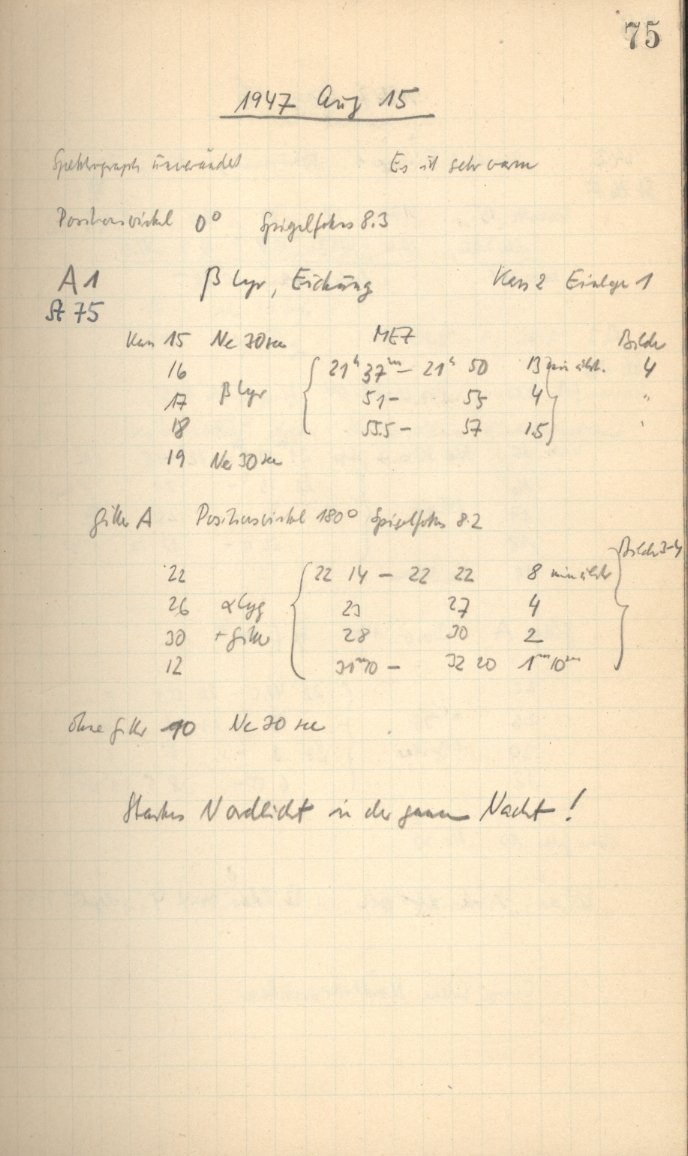 75
1947 Aug 15
Spektrograph unverändert Es ist sehr warm
Positionswinkel 0° Spiegelfokus 8.3
A 1 β Lyr, Eichung Kass 2 Einlage 1
St 75
Kass 15 Ne 30 sec MEZ Bilder
16 21h 37m – 21h 50 13 min 4
17 β Lyr 51 – 55 4 "
18 55.5 – 57 1.5 "
19 Ne 30 sec
Gitter A Positionswinkel 180° Spiegelfokus 8.2
Bilder 3-4
22 22 14 – 22 22 8 min
26 α Cyg 23 27 4
30 + Gitter 28 30 2
12 31m10 – 32 20 1m 10
ohne Gitter 10 Ne 30 sec
Starkes Nordlicht in der ganzen Nacht!